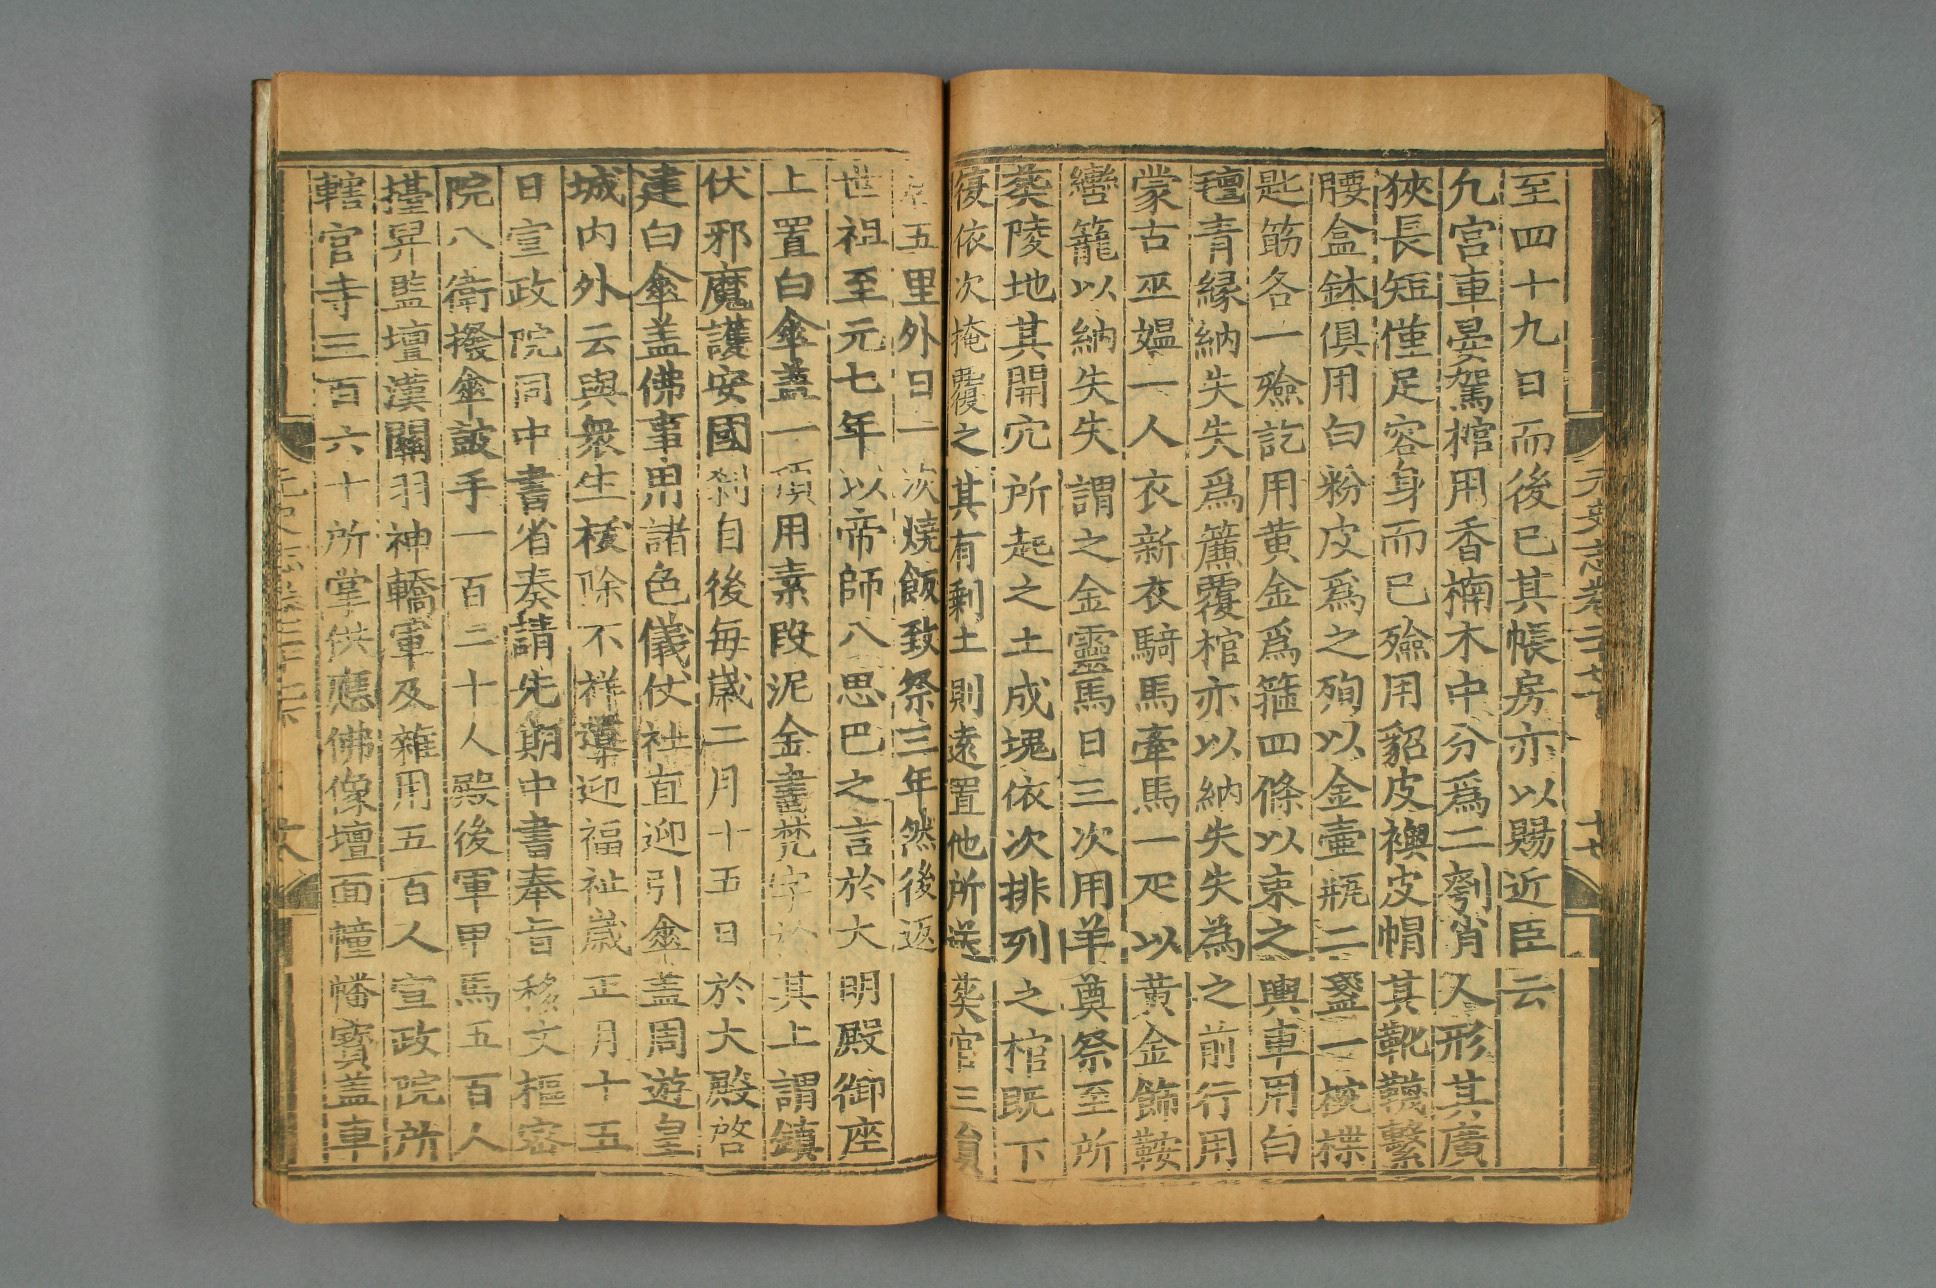 至四十九日而後已其帳房亦以賜近臣云
凢宫車晏駕棺用香楠木中分爲二刳肖人形其廣
狹長短僅足容身而已殮用貂皮襖皮帽其靴韈繫
腰盒鉢俱用白粉皮爲之殉以金壷瓶二盞一椀楪
匙筯各一殮訖用黄金爲箍四條以束之輿車用白
氊青縁納失失爲簾覆棺亦以納失失為之前行用
蒙古巫媪一人衣新衣騎馬牽馬一疋以黄金飾鞍
轡籠以納失失謂之金靈馬日三次用羊奠祭至所
葬陵地其開穴所起之土成塊依次排列之棺既下
復依次掩覆之其有剩土則逺置他所送葬官三員
五里外日一次燒飯致祭三年然後返
世祖至元七年以帝師八思巴之言於大明殿御座
上置白傘盖一頂用素段泥金書梵字於其上謂鎮
伏邪魔護安國刹自後每歲二月十五日於大殿啓
建白傘盖佛事用諸色儀仗社直迎引傘盖周遊皇
城内外云與衆生祓除不祥導迎福祉歲正月十五
日宣政院同中書省奏請先期中書奉旨移文樞密
院八衛撥傘鼓手一百二十人殿後軍甲馬五百人
擡舁監壇漢關羽神轎軍及雜用五百人宣政院所
轄宫寺三百六十所掌供應佛像壇面幢幡寳盖車
元史志卷二十七下